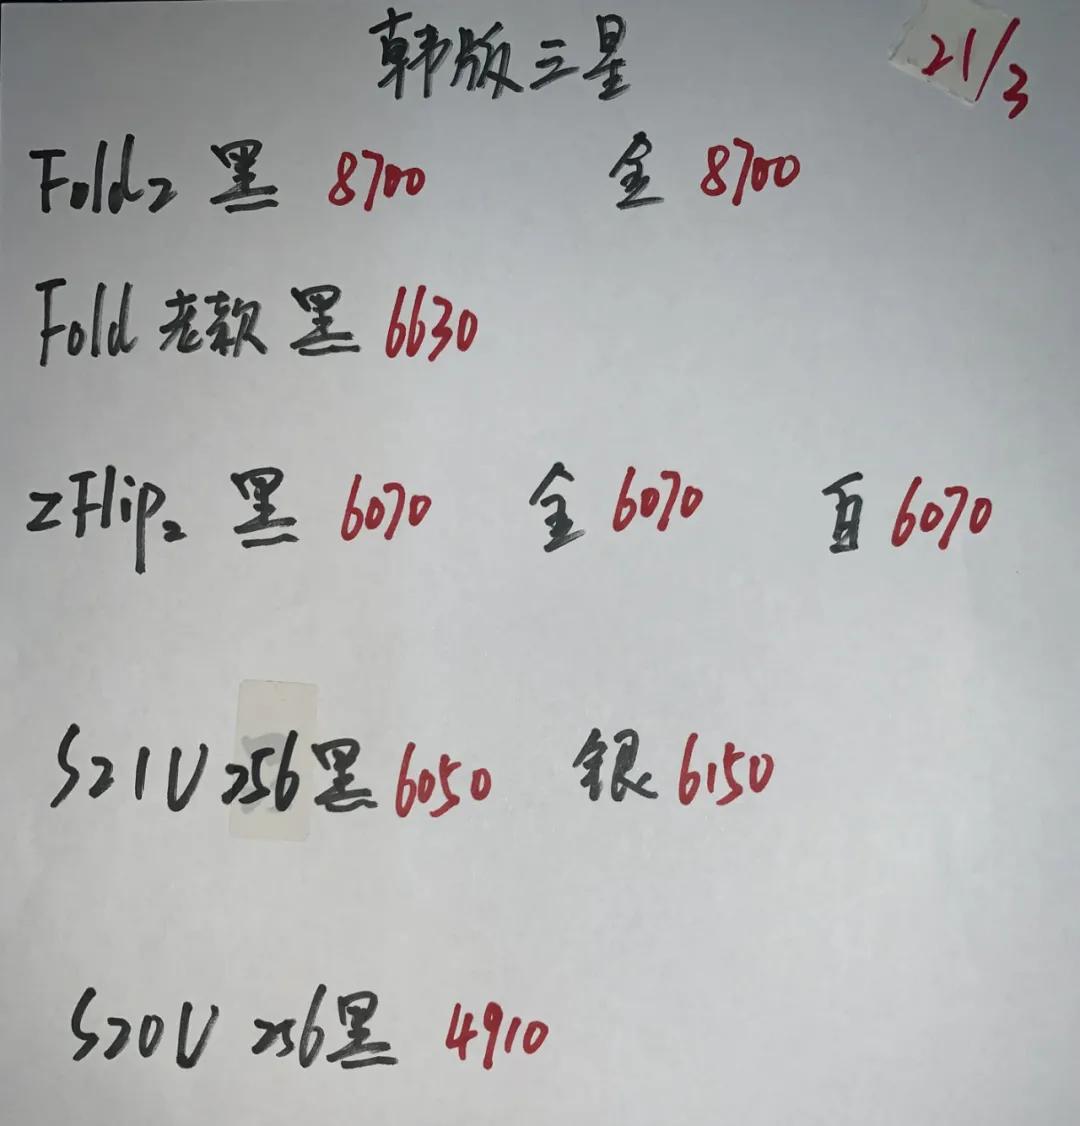 韩版三星 21/3
Fold2 黑 8700 金 8700
Fold 老款 黑 6630
zFlip2 黑 6070 金 6070 白 6070
S21U 256 黑 6050 银 6150
S20U 256 黑 4910